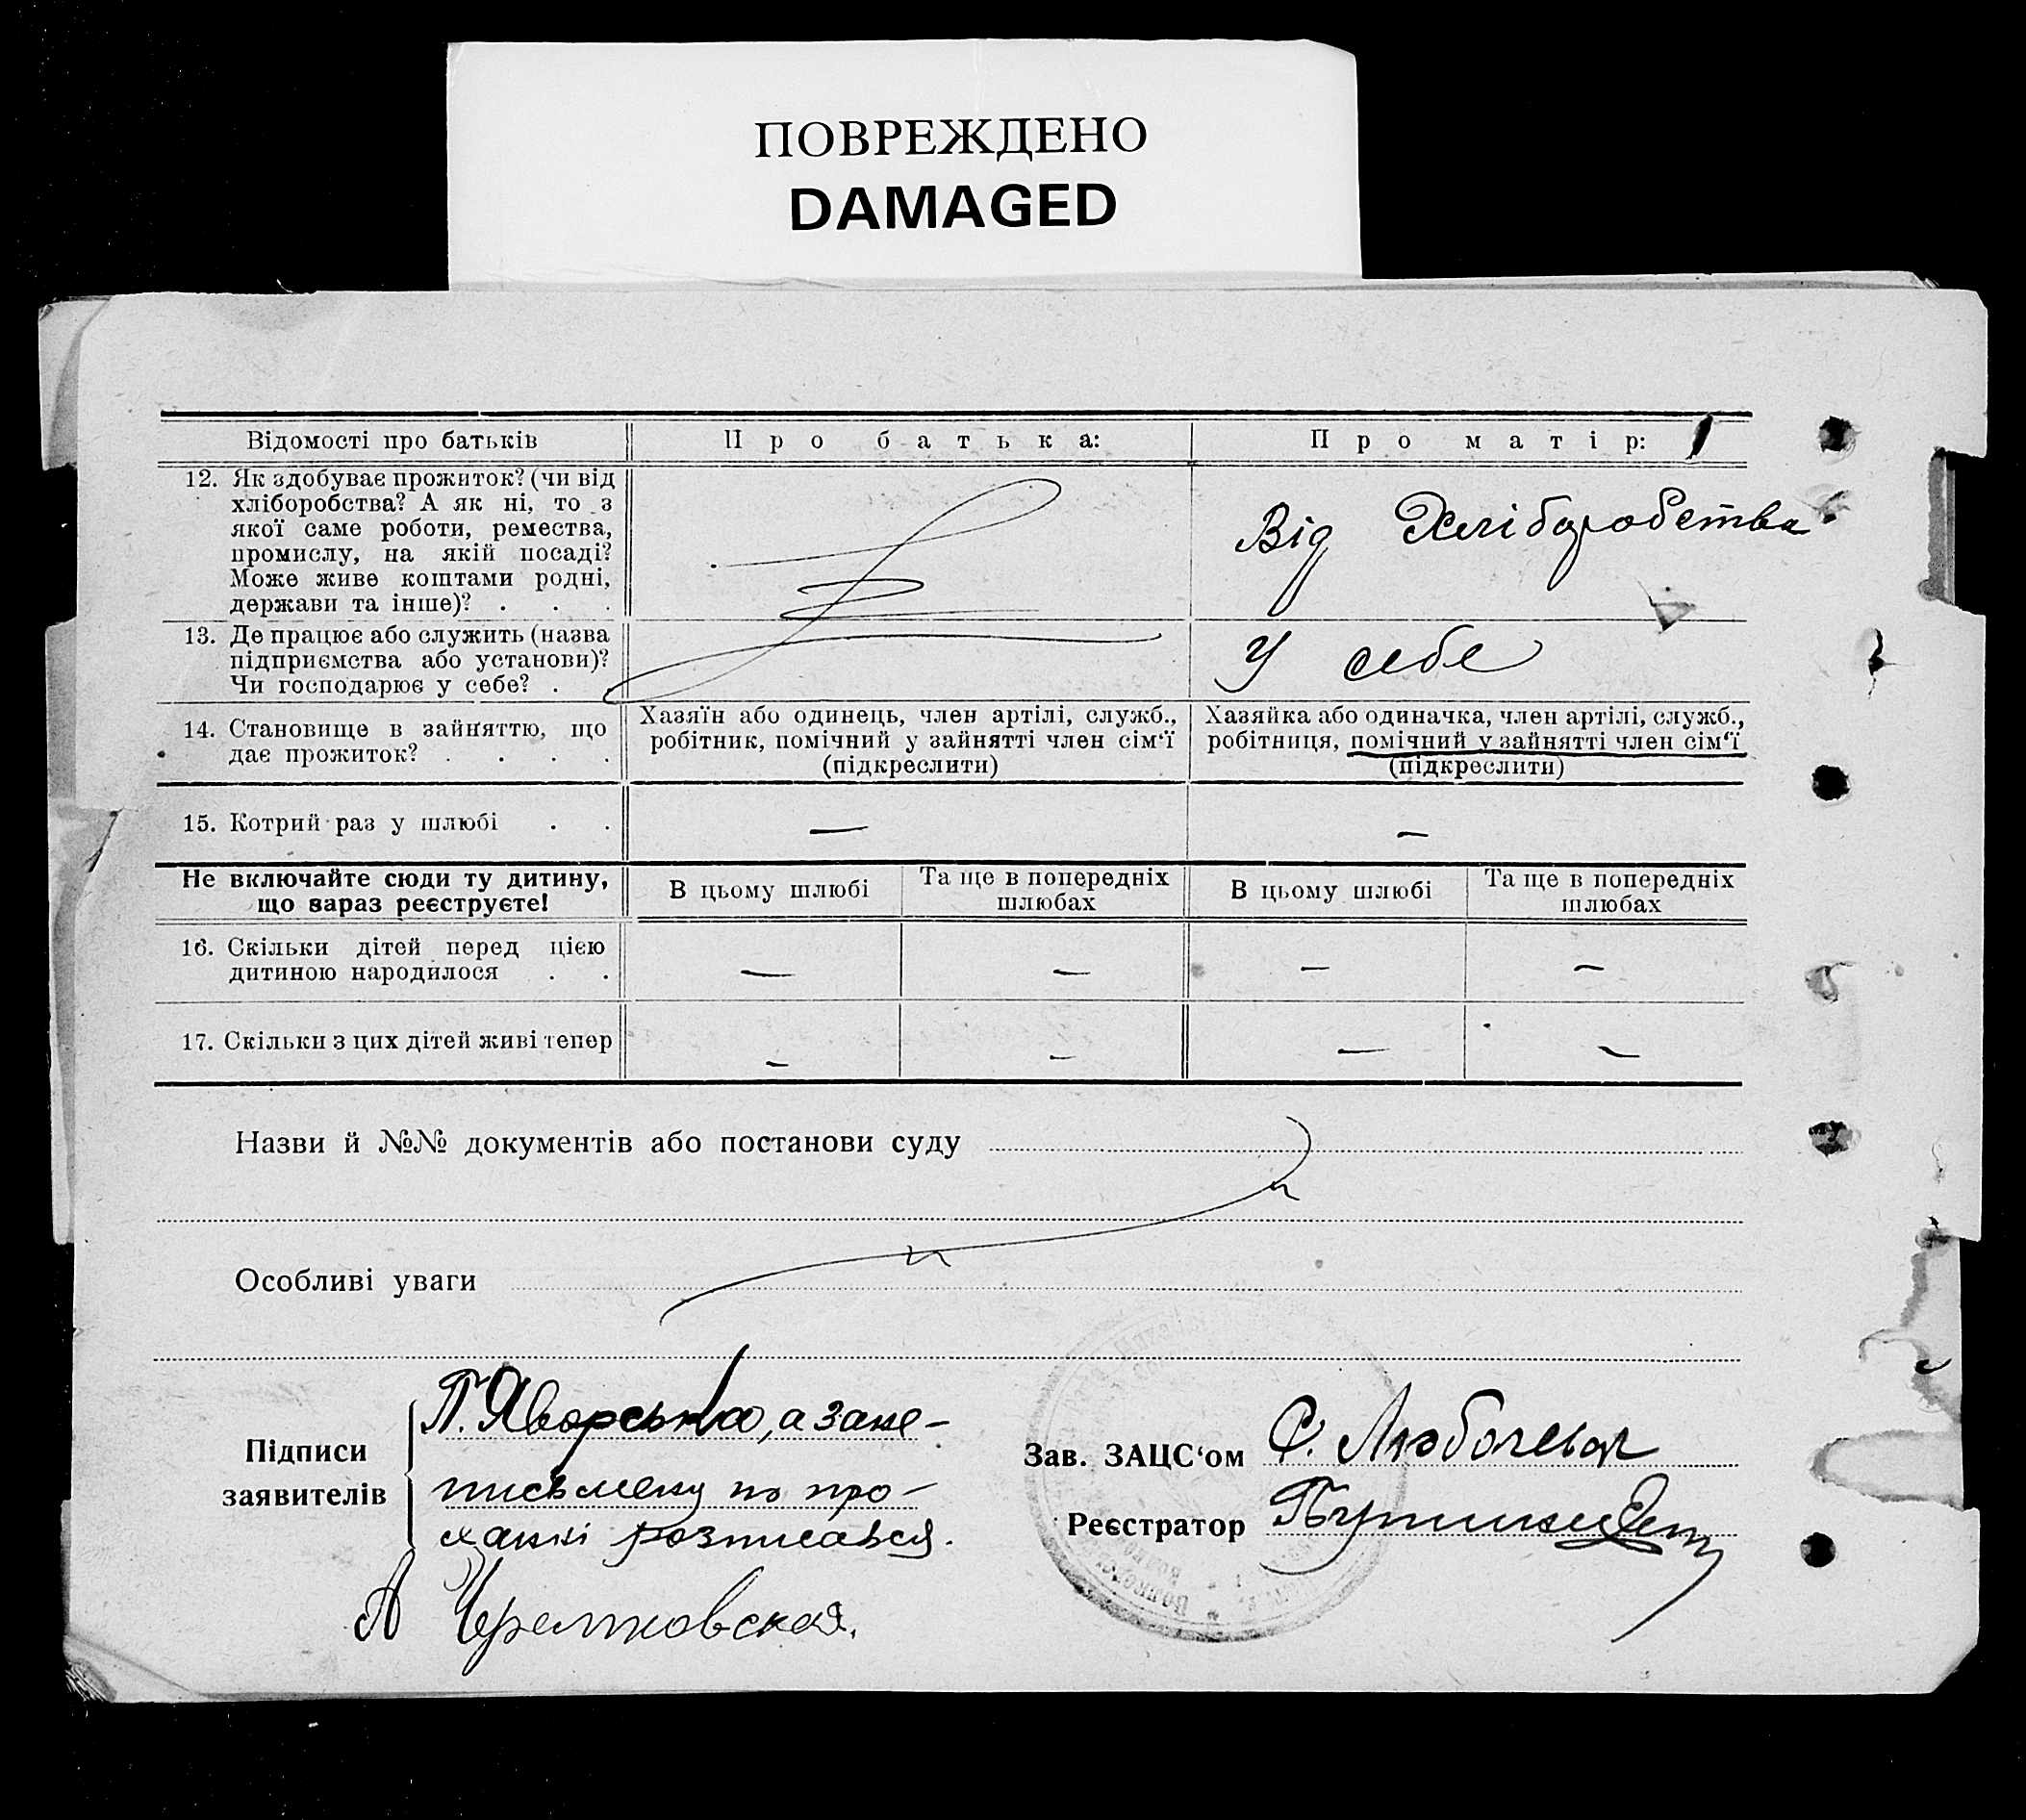 ПОВРЕЖДЕНО
DAMAGED
Відомості про батьків
Про батька:
Про матір:
12. Як здобуває прожиток? (чи від
хліборобства? А як ні, то з
якої саме роботи, ремества,
промислу, на якій посаді?
Може живе коштами родні,
держави та інше)? . . .
Від Хліборобства
13. Де працює або служить (назва
підприємства або установи)?
Чи господарює у себе? .
У себе
14. Становище в зайняттю, що
дає прожиток? . . . .
Хазяїн або одинець, член артілі, служб.,
робітник, помічний у зайнятті член сім‘ї
(підкреслити)
Хазяйка або одиначка, член артілі, служб.,
робітниця, помічний у зайнятті член сім‘ї
(підкреслити)
15. Котрий раз у шлюбі . .
— —
Не включайте сюди ту дитину,
що зараз реєструєте!
В цьому шлюбі
Та ще в попередніх
шлюбах
В цьому шлюбі
Та ще в попередніх
шлюбах
16. Скільки дітей перед цією
дитиною народилося . .
— — — —
17. Скільки з цих дітей живі тепер
— — — —
Назви й №№ документів або постанови суду
Особливі уваги
Підписи
заявителів
П. Яворська, а за не-
письмену по про-
ханні розписався.
А
Зав. ЗАЦС‘ом
С.
Реєстратор